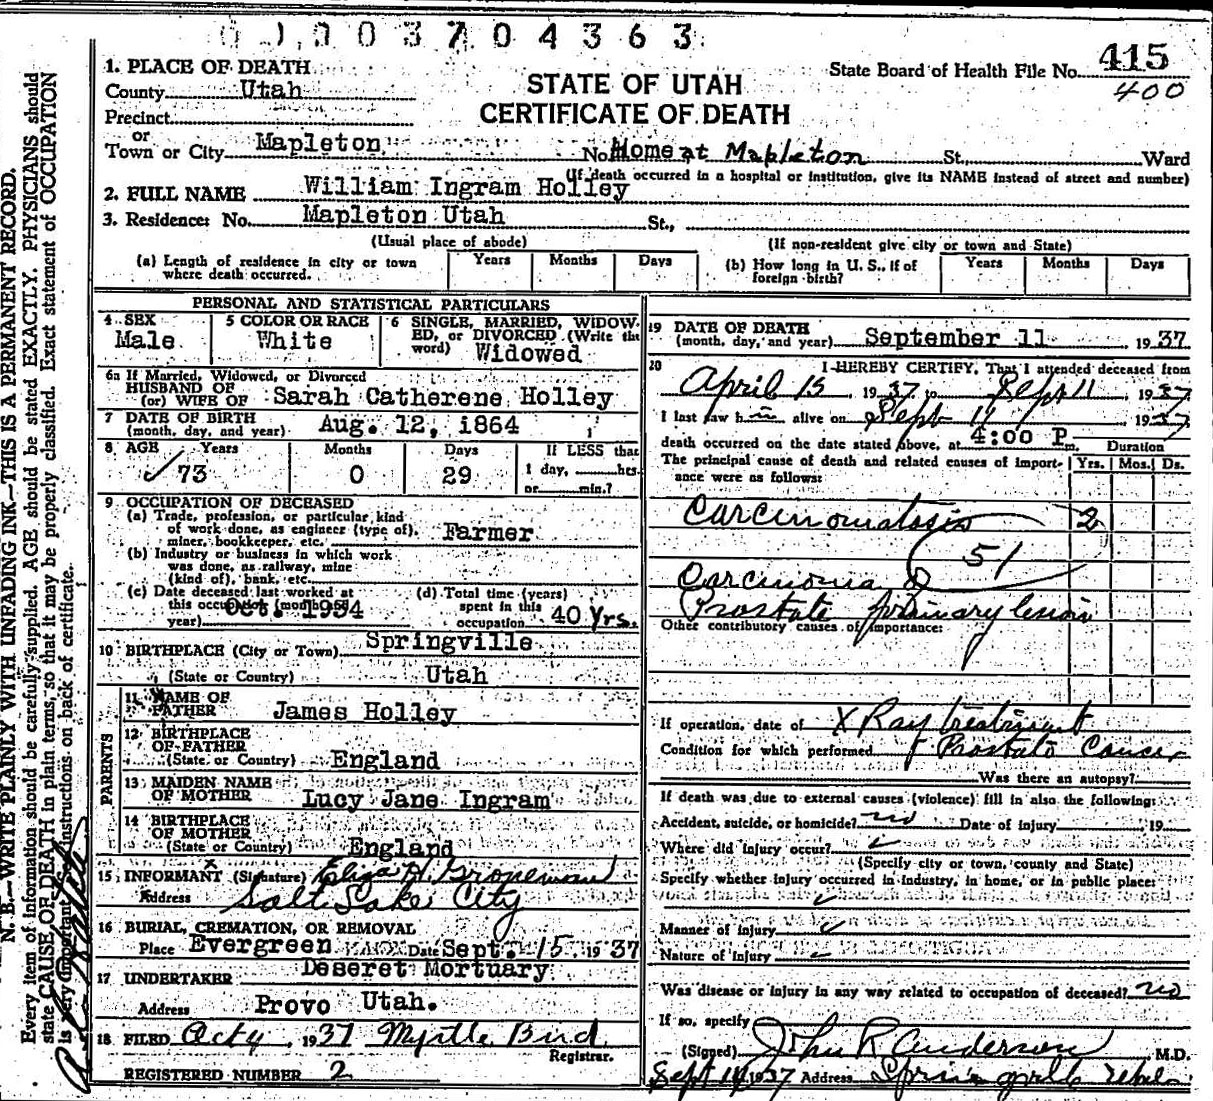 0 1 0 0 3 7 0 4 3 6 3
State Board of Health File No. 415
400
STATE OF UTAH
CERTIFICATE OF DEATH
1. PLACE OF DEATH
County Utah
Precinct
or
Town or City Mapleton No. Home at Mapleton St., Ward
(If death occurred in a hospital or institution, give its NAME instead of street and number)
2. FULL NAME William Ingram Holley
3. Residence: No. Mapleton Utah St.,
(Usual place of abode) (If non-resident give city or town and State)
(a) Length of residence in city or town where death occurred. Years Months Days (b) How long in U. S., if of foreign birth? Years Months Days
PERSONAL AND STATISTICAL PARTICULARS
4 SEX Male
5 COLOR OR RACE White
6 SINGLE, MARRIED, WIDOWED, or DIVORCED (Write the word) Widowed
6a If Married, Widowed, or Divorced
HUSBAND OF
(or) WIFE OF Sarah Catherene Holley
7 DATE OF BIRTH
(month, day, and year) Aug. 12, 1864
8 AGE Years Months Days If LESS than
73 0 29 1 day, hrs.
or min.?
9 OCCUPATION OF DECEASED
(a) Trade, profession, or particular kind
of work done, as engineer (type of),
miner, bookkeeper, etc. Farmer
(b) Industry or business in which work
was done, as railway, mine
(kind of), bank, etc.
(c) Date deceased last worked at
this occupation (month and
year) Oct. 1934
(d) Total time (years)
spent in this
occupation 40 Yrs.
10 BIRTHPLACE (City or Town) Springville
(State or Country) Utah
PARENTS
11 NAME OF
FATHER James Holley
12 BIRTHPLACE
OF FATHER
(State or Country) England
13 MAIDEN NAME
OF MOTHER Lucy Jane Ingram
14 BIRTHPLACE
OF MOTHER
(State or Country) England
15 INFORMANT (Signature) Eliza H.
Address Salt Lake City
16 BURIAL, CREMATION, OR REMOVAL
Place Evergreen Date Sept. 15, 1937
17 UNDERTAKER Deseret Mortuary
Address Provo Utah.
18 FILED 1937 Myrtle Bird
Registrar.
REGISTERED NUMBER 2
19 DATE OF DEATH
(month, day, and year) September 11 1937
20 I HEREBY CERTIFY, That I attended deceased from
April 15 1937 to Sept 11 1937
I last saw him alive on Sept 11 1937
death occurred on the date stated above, at 4:00 P m. Duration
The principal cause of death and related causes of importance were as follows: Yrs. Mos. Ds.
Carcinomatosis 2
51
Carcinoma of
Prostate primary lesion
Other contributory causes of importance:
If operation, date of X Ray treatment
Condition for which performed of Prostate Cancer
Was there an autopsy?
If death was due to external causes (violence) fill in also the following:
Accident, suicide, or homicide? no Date of injury 19
Where did injury occur?
(Specify city or town, county and State)
Specify whether injury occurred in industry, in home, or in public place:
Manner of injury
Nature of injury
Was disease or injury in any way related to occupation of deceased? no
If so, specify
(Signed) John R Anderson M.D.
Sept 14 1937 Address Springville Utah
N. B.—WRITE PLAINLY WITH UNFADING INK—THIS IS A PERMANENT RECORD.
Every item of information should be carefully supplied. AGE should be stated EXACTLY. PHYSICIANS should
state CAUSE OF DEATH in plain terms, so that it may be properly classified. Exact statement of OCCUPATION
is very important. See instructions on back of certificate.